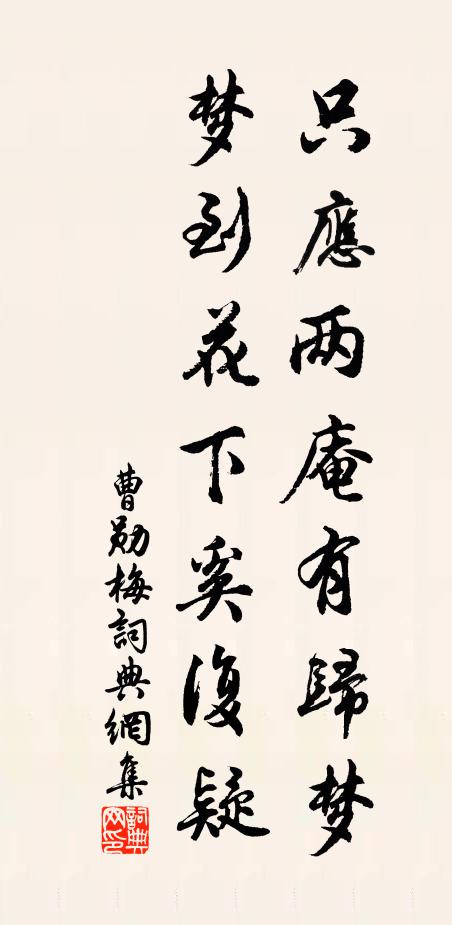 只應两庵有歸梦
梦到花下奚復疑
曹勋梅詞典網集
詞典網印